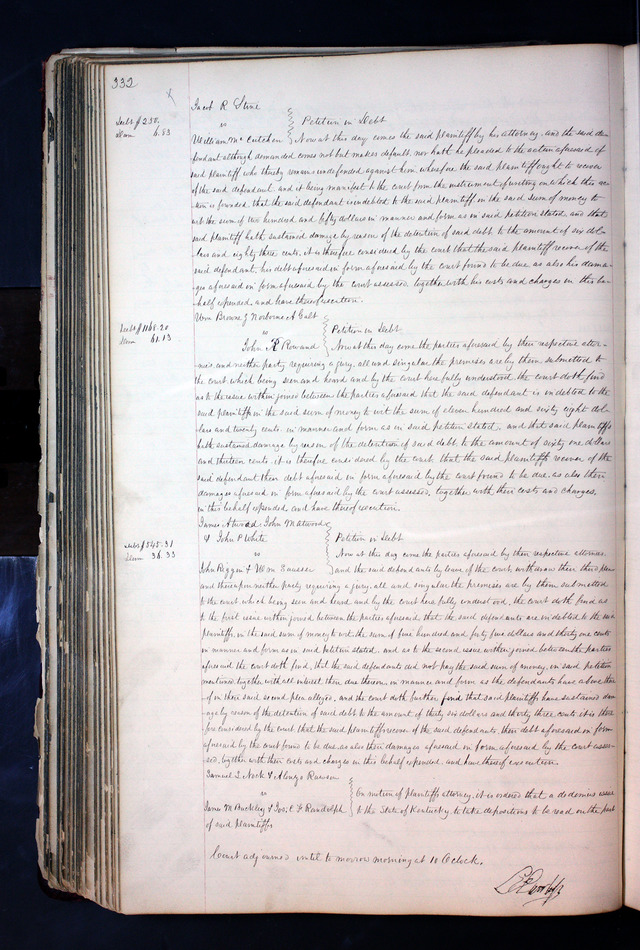 332
Jacob R Stine
vs
Petition in Debt
Debt $250.
Dam 6.83
William Mc Cutchen Now at this day comes the said plaintiff by his attorney, and the said de-
fendant although demanded comes not but makes default, nor hath he pleaded to the action aforesaid of
said plaintiff who thereby remains undefended against him wherefore the said plaintiff ought to recover
of the said defendant. and it being manifest to the court from the instrument of writing on which this ac-
tion is founded, that the said defendant is indebted to the said plaintiff in the said sum of money to
wit the sum of two hundred and fifty dollars in manner and form as in said petition stated, and that
said plaintiff hath sustained damage by reason of the detention of said debt to the amount of six dol-
lars and eighty three cents, it is therefore considered by the court that the said plaintiff recover of the
said defendant, his debt aforesaid in form aforesaid by the court found to be due as also his dama-
ges aforesaid in form aforesaid by the court assessed together with his costs and charges in this be-
half expended, and have thereof execution.
Wm Browne & Norborne A Galt
vs
Petition in Debt
Debt $1168.20
Dam 61.13
John R Rowand Now at this day come the parties aforesaid by their respective attor-
nies, and neither party requiring a jury, all and singular the premises are by them submitted to
the court which being seen and heard and by the court here fully understood the court doth find
as to the issue within joined between the parties aforesaid that the said defendant is indebted to the
said plaintiffs in the said sum of money to wit the sum of eleven hundred and sixty eight dol-
lars and twenty cents in manner and form as in said petition stated, and that said plaintiffs
hath sustained damage by reason of the detention of said debt to the amount of sixty one dollars
and thirteen cents it is therefore considered by the court that the said plaintiffs recover of the
said defendant their debt aforesaid in form aforesaid by the court found to be due, as also their
damages aforesaid in form aforesaid by the court assessed, together with their costs and charges,
in this behalf expended, and have thereof execution.
James Atwood, John M Atwood
& John P White
Petition in Debt
Debt $545.31
Dam 36.33
vs
Now at this day come the parties aforesaid by their respective attornies,
John Riggin & Wm and the said defendants by leave of the court withdraw their third plea
and thereupon neither party requiring a jury, all and singular the premises are by them submitted
to the court which being seen and heard and by the court here fully understood, the court doth find as
to the first issue within joined between the parties aforesaid that the said defendants are indebted to the said
plaintiffs in the said sum of money to wit the sum of five hundred and forty five dollars and thirty one cents
in manner and form as in said petition stated, and as to the second issue within joined between the parties
aforesaid the court doth find, that the said defendants did not pay the said sum of money in said petition
mentioned together with all interest then due thereon, in manner and form as the defendants have above there-
of in their said second plea alleged, and the court doth further find that said plaintiffs have sustained dam-
age by reason of the detention of said debt to the amount of thirty six dollars and thirty three cents it is there-
fore considered by the court that the said plaintiffs recover of the said defendants their debt aforesaid in form
aforesaid by the court found to be due, as also their damages aforesaid in form aforesaid by the court asses-
sed, together with their costs and charges in this behalf expended, and have thereof execution.
Samuel T. Nock & Alonzo Rawson
vs
On motion of plaintiffs attorney, it is ordered that a dedimus issue
James M Buckley & Jos. C F Randolph to the State of Kentucky to take depositions to be read on the part
of said plaintiffs
Court adjourned until tomorrow morning at 10 O'Clock.